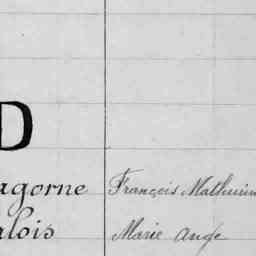 D
agorne François Mathurin
alois Marie Ange